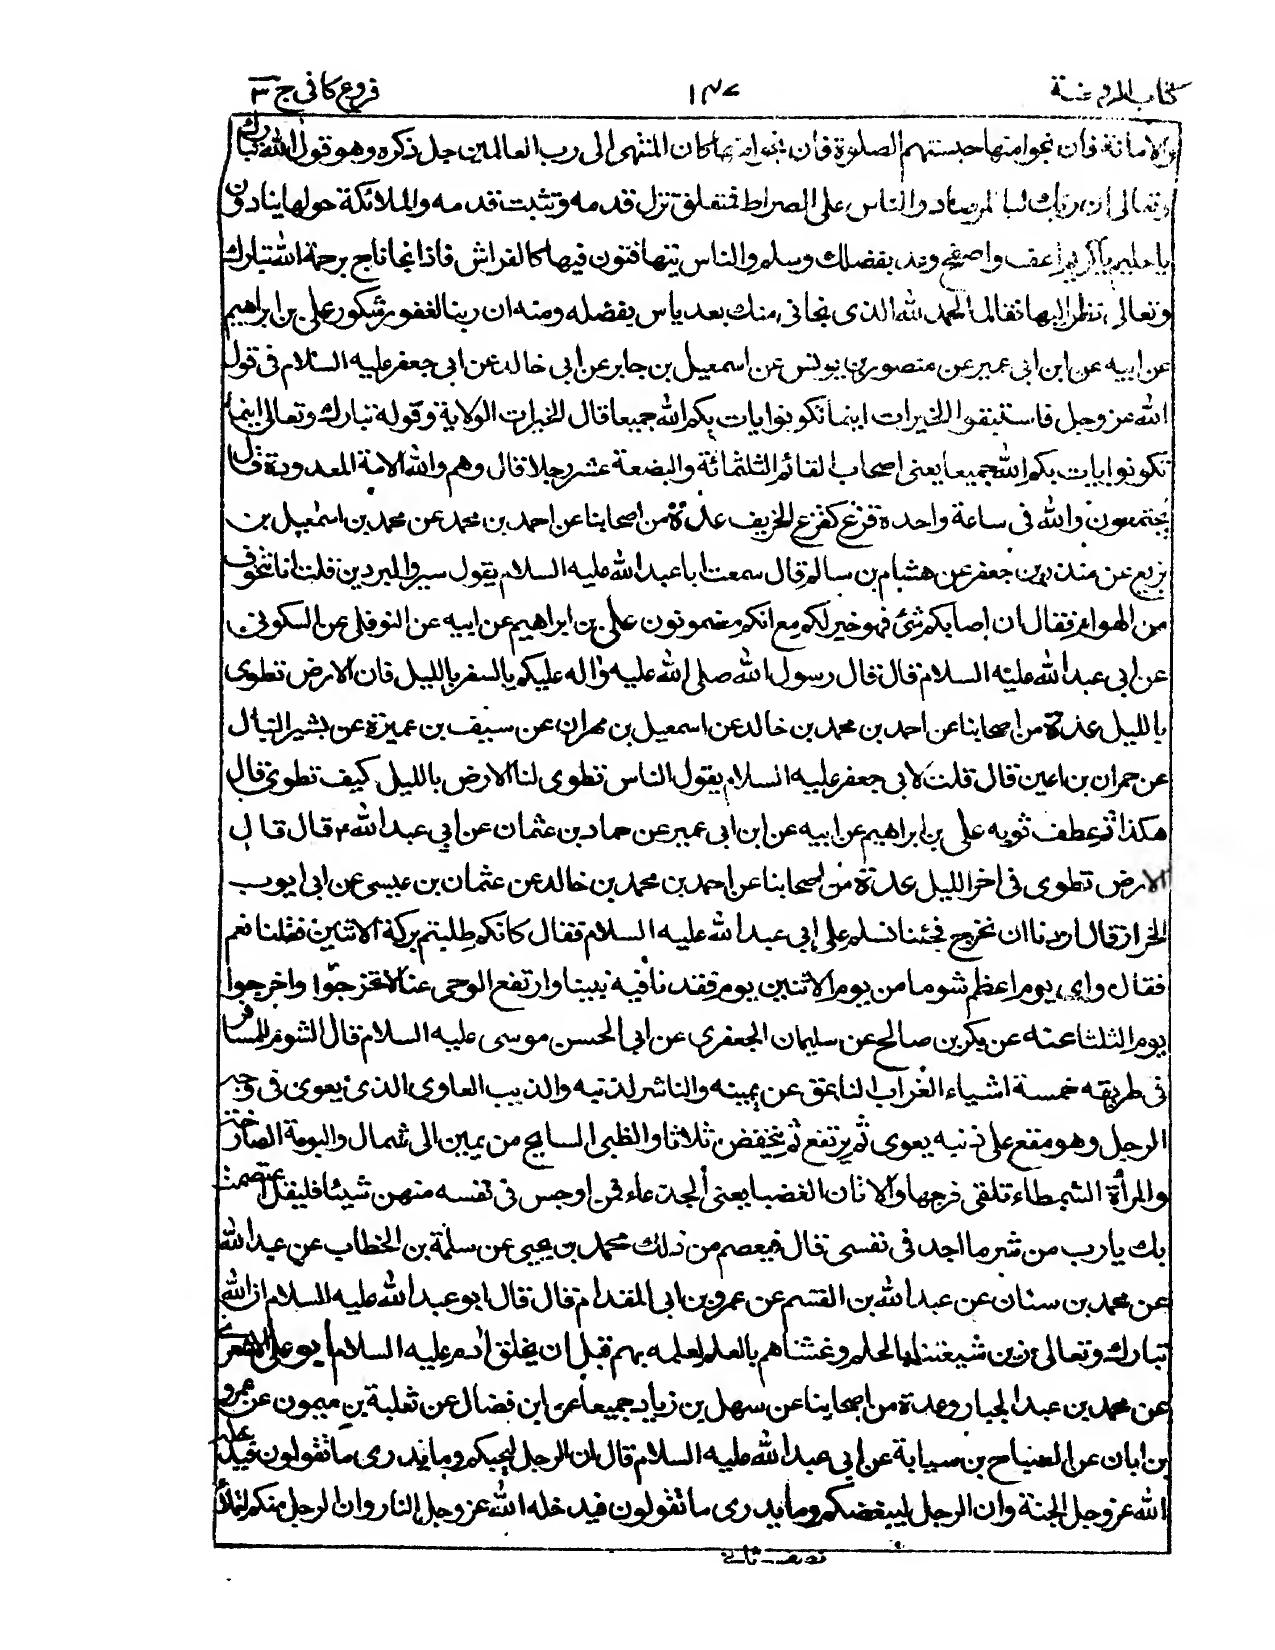 كتاب الروضة ١٤٧ فروع كافى ج ٣
والامانة فان نجوا منها حبستهم الصلوة فان نجوا منها كان المنتهى الى رب العالمين جل ذكره وهو قول الله تبارك
وتعالى ان ربك لبالمرصاد والناس على الصراط فمتعلق تزل قدمه وتثبت قدمه والملائكة حولها ينادون
يا حليم يا كريم اعف واصفح وعد بفضلك وسلم والناس يتهافتون فيها كالفراش فاذا نجا ناج برحمة الله تبارك
وتعالى نظر اليها فقال الحمد لله الذى نجانى منك بعد ياس بفضله ومنه ان ربنا لغفور شكور على بن ابراهيم
عن ابيه عن ابن ابى عمير عن منصور بن يونس عن اسمعيل بن جابر عن ابى خالد عن ابى جعفر عليه السلام فى قول
الله عز وجل فاستبقوا الخيرات اينما تكونوا يات بكم الله جميعا قال الخيرات الولاية وقوله تبارك وتعالى اينما
تكونوا يات بكم الله جميعا يعنى اصحاب القائم الثلثمائة والبضعة عشر رجلا قال وهم والله الامة المعدودة قال
يجتمعون والله فى ساعة واحدة قزع كقزع الخريف عدة من اصحابنا عن احمد بن محمد عن محمد بن اسمعيل بن
بزيع عن منذر بن جعفر عن هشام بن سالم قال سمعت ابا عبد الله عليه السلام يقول سيروا البردين قلت انا نتخوف
من الهوام فقال ان اصابكم شئ فهو خير لكم مع انكم مضمونون على بن ابراهيم عن ابيه عن النوفلى عن السكونى
عن ابى عبد الله عليه السلام قال قال رسول الله صلى الله عليه واله عليكم بالسفر بالليل فان الارض تطوى
بالليل عدة من اصحابنا عن احمد بن محمد بن خالد عن اسمعيل بن مهران عن سيف بن عميرة عن بشير النبال
عن حمران بن اعين قال قلت لابى جعفر عليه السلام يقول الناس تطوى لنا الارض بالليل كيف تطوى قال
هكذا ثم عطف ثوبه على بن ابراهيم عن ابيه عن ابن ابى عمير عن حماد بن عثمان عن ابى عبد الله ع قال قال
الارض تطوى فى اخر الليل عدة من اصحابنا عن احمد بن محمد بن خالد عن عثمان بن عيسى عن ابى ايوب
الخراز قال اردنا ان نخرج فجئنا نسلم على ابى عبد الله عليه السلام فقال كانكم طلبتم بركة الاثنين فقلنا نعم
فقال واى يوم اعظم شوما من يوم الاثنين يوم فقدنا فيه نبينا وارتفع الوحى عنا لا تخرجوا واخرجوا
يوم الثلثا عنه عن بكر بن صالح عن سليمان الجعفرى عن ابى الحسن موسى عليه السلام قال الشوم للمسافر
فى طريقه خمسة اشياء الغراب الناعق عن يمينه والناشر لذنبه والذيب العاوى الذى يعوى فى وجه
الرجل وهو مقع على ذنبه يعوى ثم يرتفع ثم ينخفض ثلاثا والظبى السانح من يمين الى شمال والبومة الصارخة
والمرأة الشمطاء تلقى فرجها والاتان العضبا يعنى الجدعاء فمن اوجس فى نفسه منهن شيئا فليقل اعتصمت
بك يا رب من شر ما اجد فى نفسى قال فيعصم من ذلك محمد بن يحيى عن سلمة بن الخطاب عن عبد الله
عن محمد بن سنان عن عبد الله بن القسم عن عمرو بن ابى المقدام قال قال ابو عبد الله عليه السلام ان الله
تبارك وتعالى زين شيعتنا بالحلم وغشاهم بالعلم لعلمه بهم قبل ان يخلق ادم عليه السلام ابو على الاشعرى
عن محمد بن عبد الجبار وعدة من اصحابنا عن سهل بن زياد جميعا عن ابن فضال عن ثعلبة بن ميمون عن عمرو
بن ابان عن الصباح بن سيابة عن ابى عبد الله عليه السلام قال ان الرجل ليحبكم وما يدرى ما تقولون فيدخله
الله عز وجل الجنة وان الرجل ليبغضكم وما يدرى ما تقولون فيدخله الله عز وجل النار وان الرجل منكم لتملأ